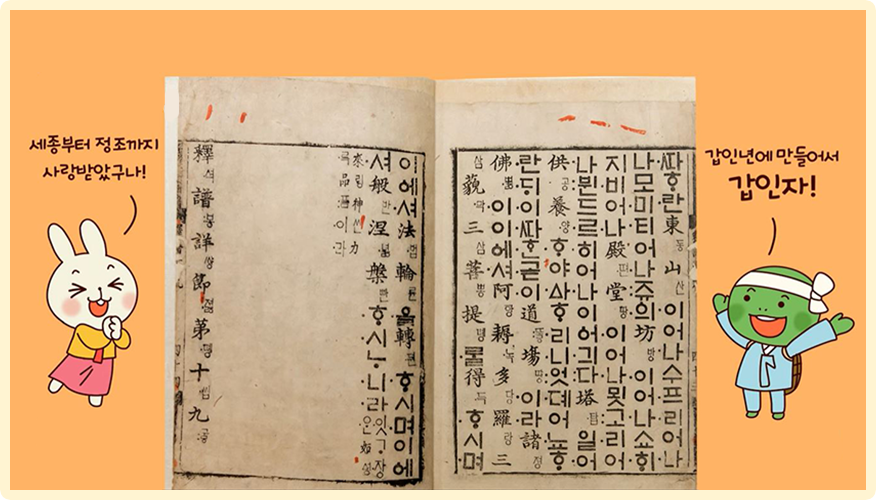 세종부터 정조까지
사랑받았구나!
갑인년에 만들어서
갑인자!
ᄯᅡᄒᆞ란東동山산이어나수프리어나
나모미티어나쥬의坊방이어나쇼ᄒᆡ
지비어나殿뎐堂땅이어나묏고리어
나뷘드르히어나이어긔다塔탑일어
供공養양ᄒᆞ야ᅀᅡᄒᆞ리니엇뎨어뇨ᄒᆞ
란ᄃᆡ이ᄯᅡᄒᆞᆫ곧이道場이라諸
佛이이에셔阿耨多羅三
藐三菩提ᄅᆞᆯ得ᄒᆞ시며
이에셔法輪을轉ᄒᆞ시며이에
셔般涅槃ᄒᆞ시ᄂᆞ니라
釋譜詳節第十九